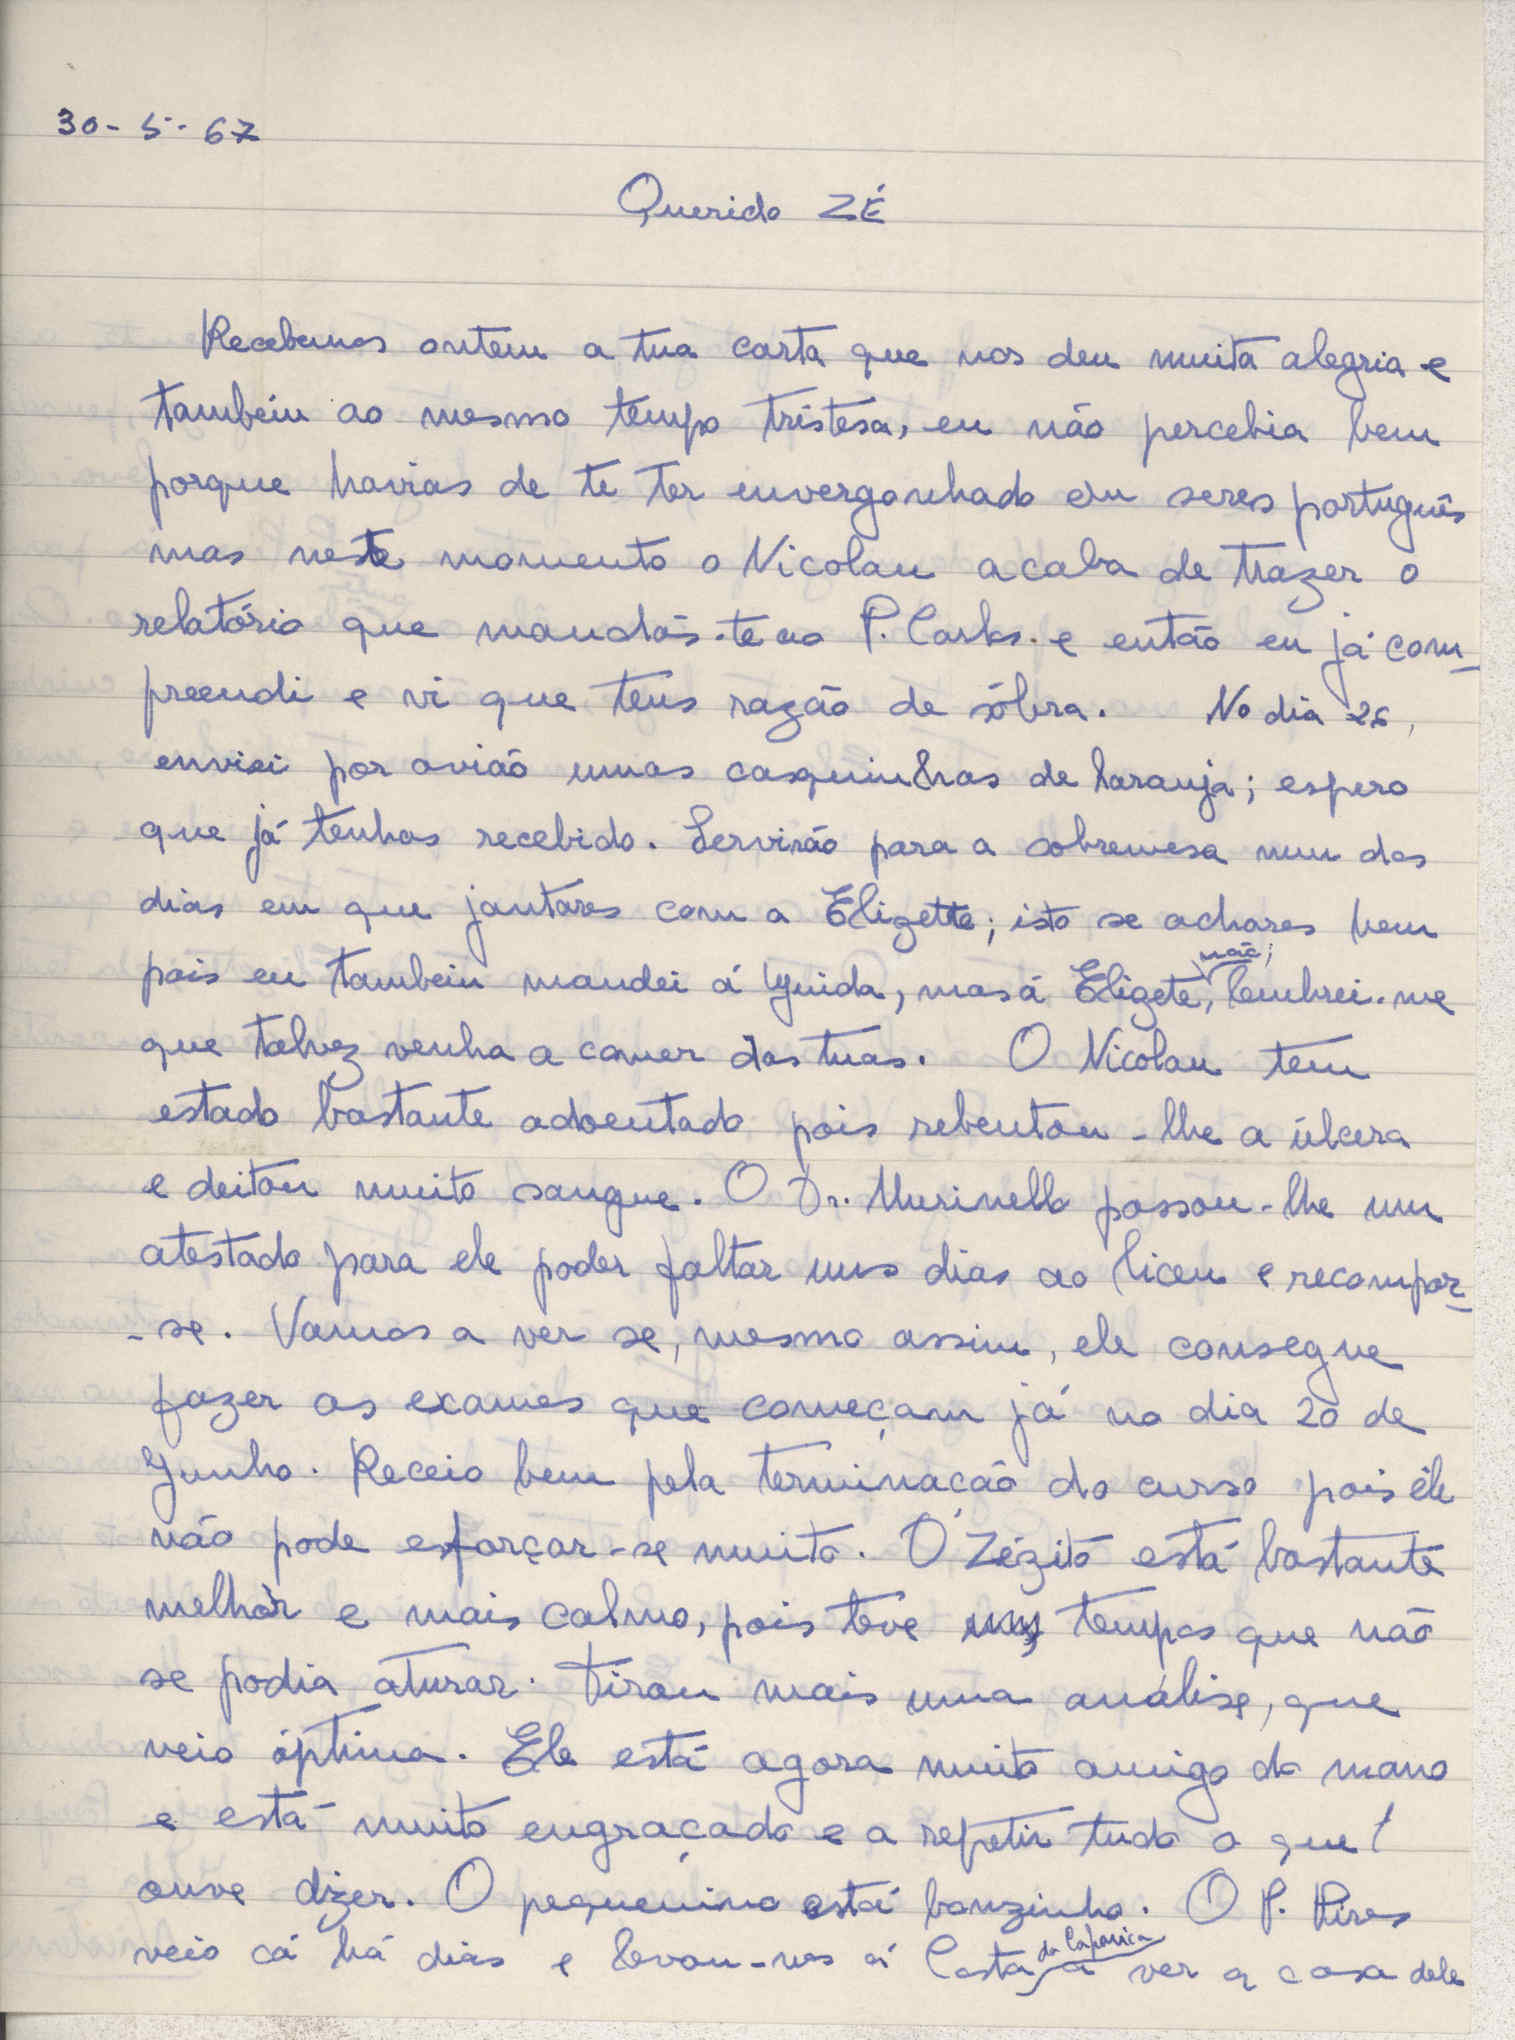 30-5-67
Querido ZÉ
Recebemos ontem a tua carta que nos deu muita alegria e
tambêm ao mesmo tempo tristesa, eu não percebia bem
porque havias de te ter envergonhado em seres português
mas neste momento o Nicolau acaba de trazer o
relatório que mandás-te ao P. Carlos. e então eu já com-
preendi e vi que tens razão de sóbra. No dia 26,
enviei por avião umas casquinhas de laranja; espero
que já tenhas recebido. Servirão para a sobremesa num dos
dias em que jantares com a Elizette; isto se achares bem
pois eu tambêm mandei á Guida, mas á Elizete, não; lembrei-me
que talvez venha a comer das tuas. O Nicolau tem
estado bastante adoentado pois rebentou-lhe a úlcera
e deitou muito sangue. O Dr. Murinello passou-lhe um
atestado para ele poder faltar uns dias ao liceu e recompor-
-se. Vamos a ver se, mesmo assim, ele consegue
fazer os exames que começam já no dia 20 de
Junho. Receio bem pela terminação do curso pois êle
não pode esforçar-se muito. O Zézito está bastante
melhór e mais calmo, pois teve uns tempos que não
se podia aturar. Tirou mais uma análise, que
veio óptima. Ele está agora muito amigo do mano
e está muito engraçado e a repetir tudo o que
ouve dizer. O pequenino está bonzinho. O P. Pires
veio cá há dias e levou-nos á Costa da Caparica a ver a casa dele